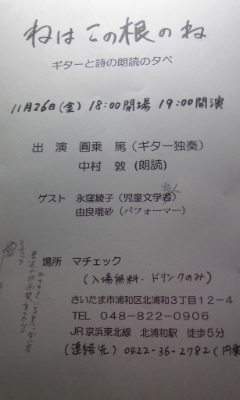 ねは この根の ね
ギターと詩の朗読の夕べ
11月26日(金) 18:00開場 19:00開演
出 演 圓乗 篤（ギター独奏）
中村 敦（朗読）
ゲスト 永窪綾子（児童文学者）
詩人
由良瓏砂（パフォーマー）
場所 マチェック
(入場無料・ドリンクのみ)
さいたま市浦和区北浦和3丁目12－4
TEL 048-822-0906
JR京浜東北線 北浦和駅 徒歩5分
(連絡先) 0422-36-2782 (円乗